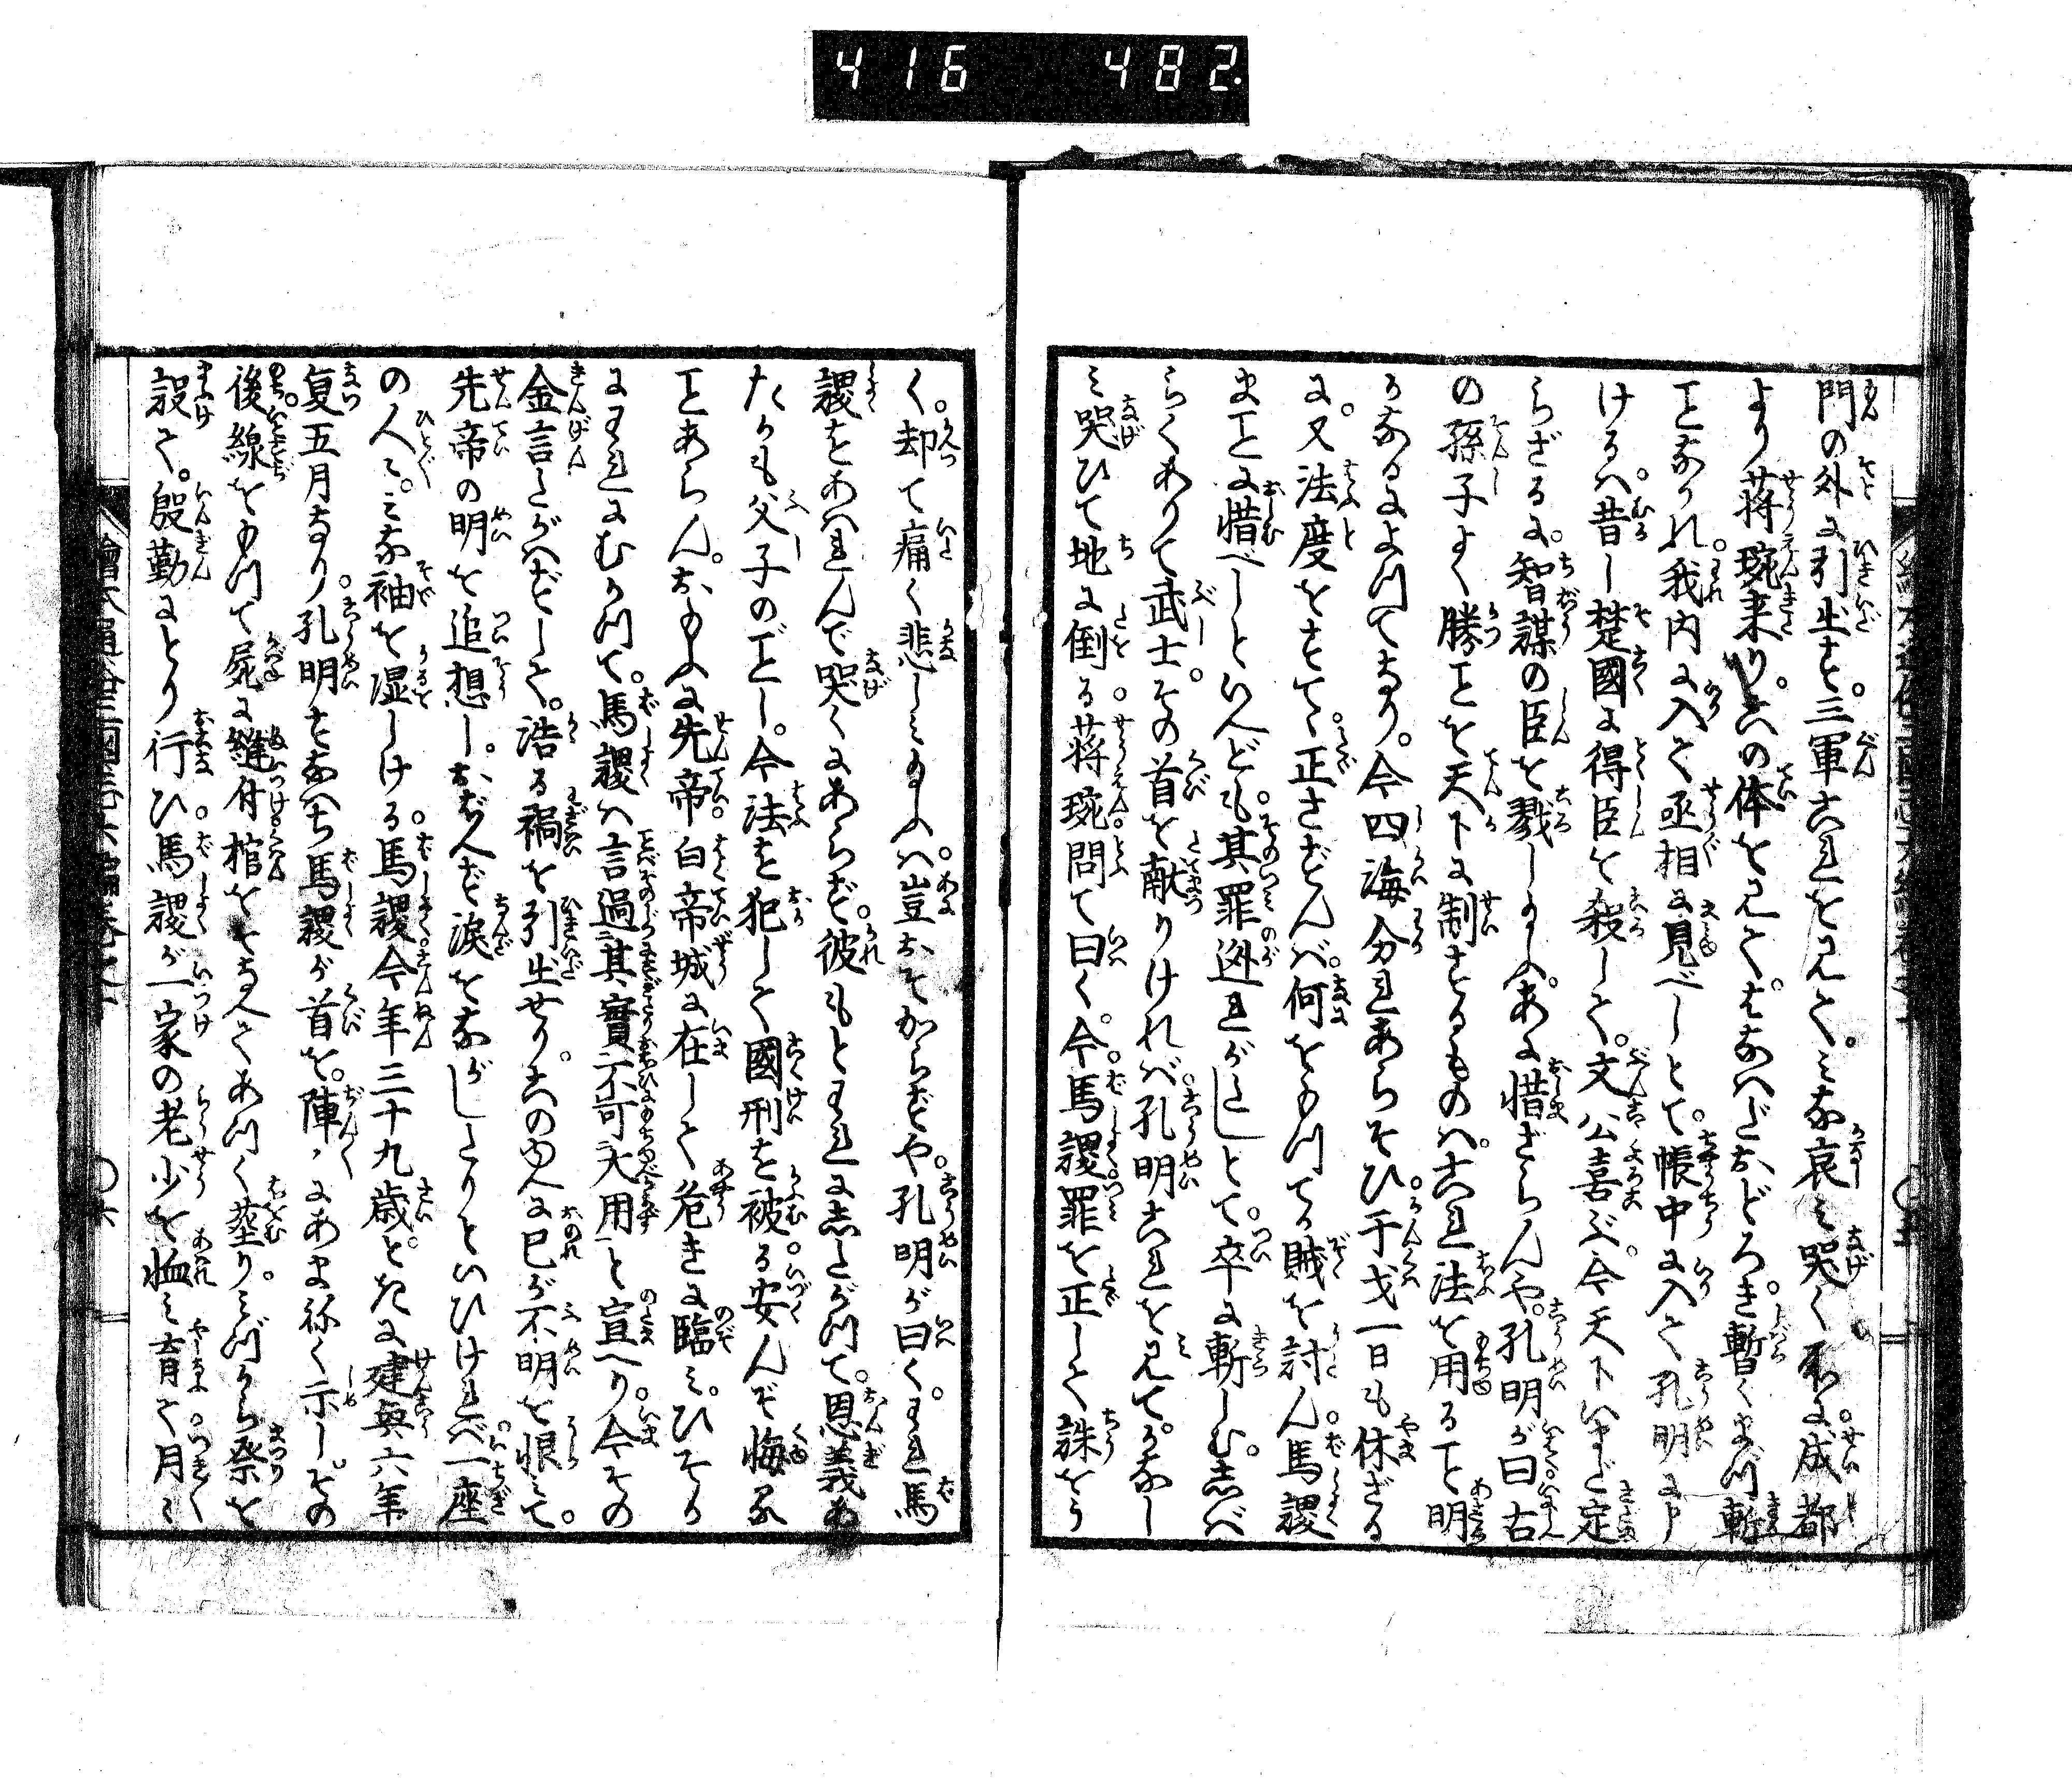 416 482
門の外に引出す。三軍これを見て。みな哀み哭く所に成都
より蒋琬来り。この体を見て。はなはだおどろき。暫くまづ斬
ことなかれ。我内に入て丞相に見べしとて。帳中に入て孔明に申
けるハ。昔し楚國に得臣を殺して。文公喜ぶ。今天下いまだ定
らざるに。智謀の臣を戮し玉ふ。あに惜ざらんや。孔明が曰古
の孫子よく勝ことを天下に制するものハ。これ法を用ること明
かなるによつてなり。今四海分れあらそひ。干戈一日も休ざる
に。又法度をすてゝ正さずんバ。何をもつてか賊を討ん。馬謖
まことに惜べしといへども。其罪迯れがたしとて。卒に斬しむ。しバ
らくありて武士。その首を献りけれバ。孔明これを見て。かなし
み哭ひて地に倒る。蒋琬。問て曰く。今。馬謖罪を正して誅をう
く。却て痛く悲しみ玉ふハ。豈おそかからずや。孔明が曰く。われ馬
謖をあハれんで哭くにあらず。彼もとわれにしたがつて。恩義あ
たかも父子のごとし。今法を犯して國刑を被る安んぞ悔る
ことあらん。おもふに先帝。白帝城に在して危きに臨み。ひそか
にわれにむかつて。馬謖ハ言過其實不可大用と宣へり。今その
金言たがハずして。浩る禍を引出せり。このゆへに己が不明を恨みて。
先帝の明を追想し。おぼへず涙をながしたりといひけれバ。一座
の人々。みな袖を湿しける。馬謖今年三十九歳。ときに建興六年
夏五月なり。孔明すなハち馬謖が首を。陣々にあまねく示し。その
後。線をもつて屍に縫付棺をそなへてあつく塟り。みづから祭を
設て。殷勤にとり行ひ。馬謖が一家の老少を恤み育て月々